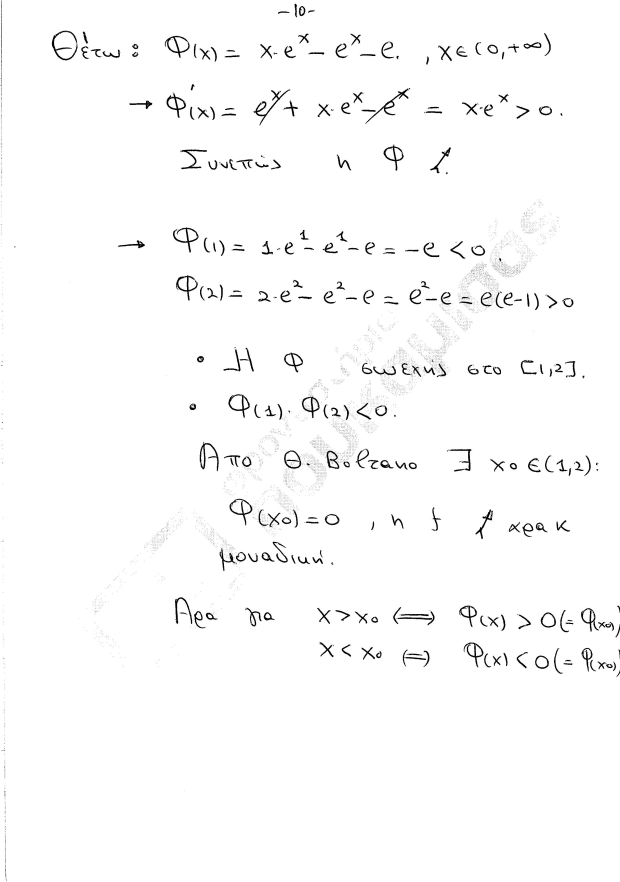 -10-
Θέτω: Φ(x) = x·e^x - e^x - e. , x∈(0,+∞)
→ Φ'(x) = e^x + x·e^x - e^x = x·e^x > 0.
Συνεπώς η Φ ↑.
→ Φ(1) = 1·e^1 - e^1 - e = -e < 0.
Φ(2) = 2·e^2 - e^2 - e = e^2 - e = e(e-1) > 0
• Η Φ συνεχής στο [1,2].
• Φ(1)·Φ(2) < 0.
Απο Θ. Bolzano ∃ xo ∈(1,2):
Φ(xo) = 0 , η f ↑ αρα κ
μοναδική.
Αρα για x > xo ⟺ Φ(x) > 0 (= Φ(xo)
x < xo ⟺ Φ(x) < 0 (= Φ(xo)
φροντιστήριο
πουκαμισάς